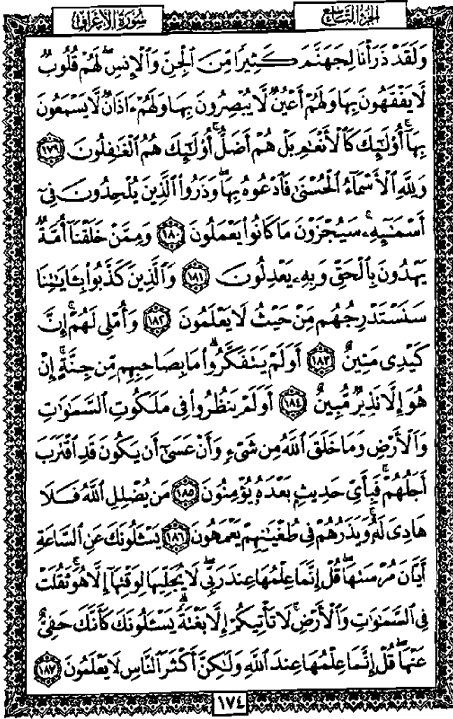 الجزء التاسع
سورة الأعراف
وَلَقَدْ ذَرَأْنَا لِجَهَنَّمَ كَثِيرًا مِّنَ الْجِنِّ وَالْإِنسِ ۖ لَهُمْ قُلُوبٌ
لَّا يَفْقَهُونَ بِهَا وَلَهُمْ أَعْيُنٌ لَّا يُبْصِرُونَ بِهَا وَلَهُمْ ءَاذَانٌ لَّا يَسْمَعُونَ
بِهَا ۚ أُوْلَٰٓئِكَ كَالْأَنْعَٰمِ بَلْ هُمْ أَضَلُّ ۚ أُوْلَٰٓئِكَ هُمُ الْغَٰفِلُونَ ١٧٩
وَلِلَّهِ الْأَسْمَآءُ الْحُسْنَىٰ فَادْعُوهُ بِهَا ۖ وَذَرُوا۟ الَّذِينَ يُلْحِدُونَ فِىٓ
أَسْمَٰٓئِهِۦ ۚ سَيُجْزَوْنَ مَا كَانُوا۟ يَعْمَلُونَ ١٨٠ وَمِمَّنْ خَلَقْنَآ أُمَّةٌ
يَهْدُونَ بِالْحَقِّ وَبِهِۦ يَعْدِلُونَ ١٨١ وَالَّذِينَ كَذَّبُوا۟ بِـَٔايَٰتِنَا
سَنَسْتَدْرِجُهُم مِّنْ حَيْثُ لَا يَعْلَمُونَ ١٨٢ وَأُمْلِى لَهُمْ ۚ إِنَّ
كَيْدِى مَتِينٌ ١٨٣ أَوَلَمْ يَتَفَكَّرُوا۟ ۗ مَا بِصَاحِبِهِم مِّن جِنَّةٍ ۚ إِنْ
هُوَ إِلَّا نَذِيرٌ مُّبِينٌ ١٨٤ أَوَلَمْ يَنظُرُوا۟ فِى مَلَكُوتِ السَّمَٰوَٰتِ
وَالْأَرْضِ وَمَا خَلَقَ اللَّهُ مِن شَىْءٍ وَأَنْ عَسَىٰٓ أَن يَكُونَ قَدِ اقْتَرَبَ
أَجَلُهُمْ ۖ فَبِأَىِّ حَدِيثٍۭ بَعْدَهُۥ يُؤْمِنُونَ ١٨٥ مَن يُضْلِلِ اللَّهُ فَلَا
هَادِىَ لَهُۥ ۚ وَيَذَرُهُمْ فِى طُغْيَٰنِهِمْ يَعْمَهُونَ ١٨٦ يَسْـَٔلُونَكَ عَنِ السَّاعَةِ
أَيَّانَ مُرْسَىٰهَا ۖ قُلْ إِنَّمَا عِلْمُهَا عِندَ رَبِّى ۖ لَا يُجَلِّيهَا لِوَقْتِهَآ إِلَّا هُوَ ۚ ثَقُلَتْ
فِى السَّمَٰوَٰتِ وَالْأَرْضِ ۚ لَا تَأْتِيكُمْ إِلَّا بَغْتَةً ۗ يَسْـَٔلُونَكَ كَأَنَّكَ حَفِىٌّ
عَنْهَا ۖ قُلْ إِنَّمَا عِلْمُهَا عِندَ اللَّهِ وَلَٰكِنَّ أَكْثَرَ النَّاسِ لَا يَعْلَمُونَ ١٨٧
١٧٤